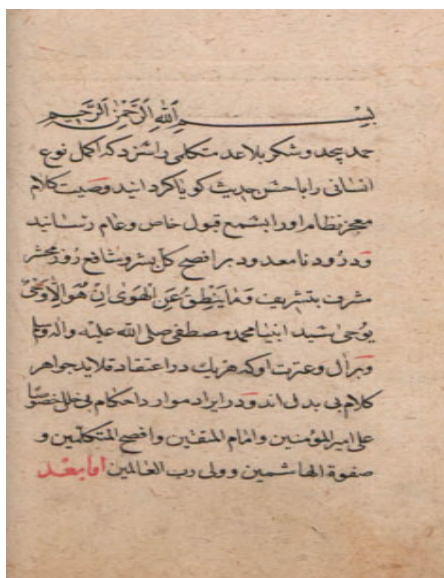 بسم الله الرحمن الرحيم
حمد بیحد و شکر بلا عد متکلمی را سزد که اکمل نوع
انسانی را باحسن حدیث کویا کردانید وصیت کلام
معجز نظام او را بسمع قبول خاص و عام رسانید
و درود نامعدود بر افصح کل بشر و شافع روز محشر
مشرف بتشریف وَمَا يَنطِقُ عَنِ الْهَوَىٰ اِنْ هُوَ اِلَّا وَحْیٌ
یُوحٰی سید انبیا محمد مصطفی صلی الله علیه واله وسلم
و بر آل و عترت او که هریک در اعتقاد قلاید جواهر
کلام بی بدل اند و در ایراد موارد احکام بی خلل خصوصًا
علی امیر المؤمنین وامام المتقین وافصح المتکلمین و
صفوة الهاشمین وولی رب العالمین اما بعد